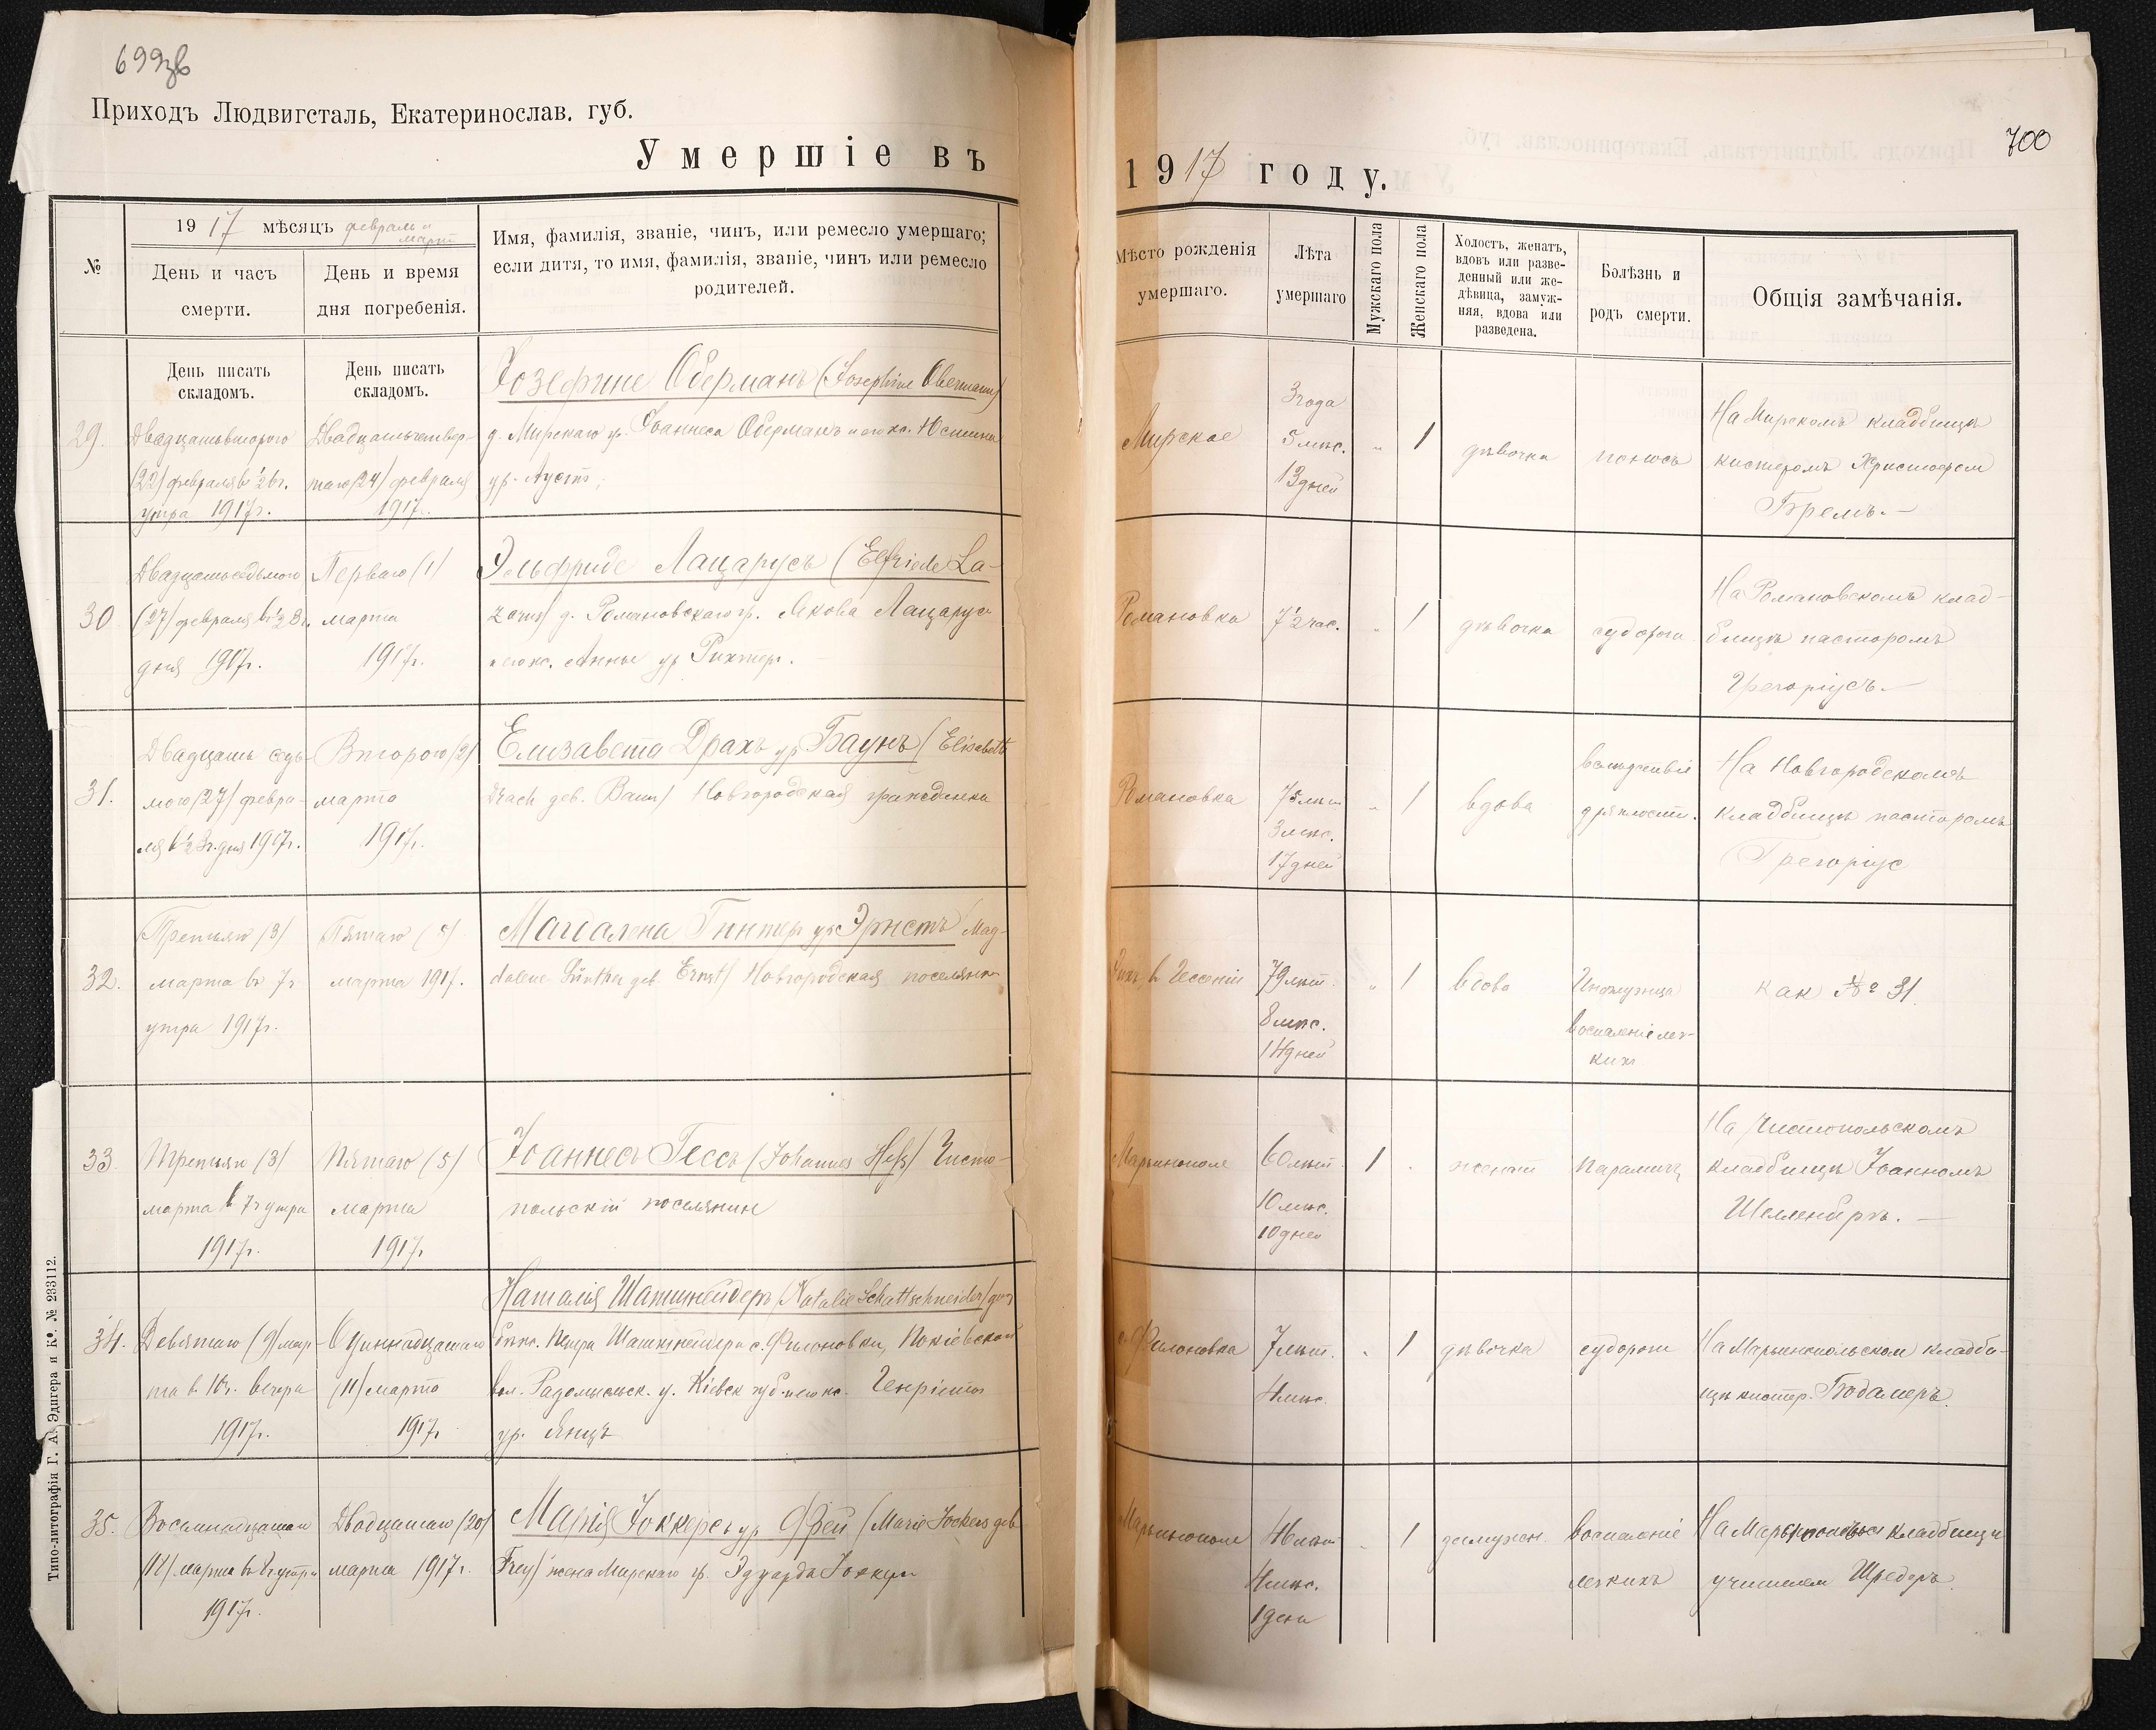 699зв
Приходъ Людвигсталь, Екатеринослав. губ.
Умершіе въ
1917 году.
700
№
1917 мѣсяцъ февраль и
мартъ
День и часъ
смерти.
День и время
дня погребенія.
Имя, фамилія, званіе, чинъ, или ремесло умершаго;
если дитя, то имя, фамилія, званіе, чинъ или ремесло
родителей.
Мѣсто рожденія
умершаго.
Лѣта
умершаго
Мужскаго пола
Женскаго пола
Холостъ, женатъ,
вдовъ или разве-
денный или же-
дѣвица, замуж-
няя, вдова или
разведена.
Болѣзнь и
родъ смерти.
Общія замѣчанія.
День писать
складомъ.
День писать
складомъ.
29.
Двадцатьвторого
(22) февраля в ½ 6 г.
утра 1917г.
Двадцатьчетвер-
таго (24) февраля
1917г.
Іозефине Оберманъ (Josephine Obermann)
д. Мирскаго гр. Іоаннеса Оберманъ и его жс. Юстины
ур. Аустъ;
Мирское
3 года
5 мѣс.
13 дней
"
1
дѣвочка
поносъ
На Мирскомъ кладбищѣ
кистеромъ Христофом
Бремъ.-
30
Двадцатьседьмого
(27) февраля в ½ 3 г.
дня 1917г.
Перваго (1)
марта
1917г.
Эльфриде Лацарусъ (Elfriede La-
zarus) д. Романовскаго гр. Якова Лацаруса
и его жс. Анны ур Рихтеръ.
Романовка
7½ час.
"
1
дѣвочка
судороги
На Романовскомъ клад-
бищѣ пасторомъ
Грегоріусъ.-
31.
Двадцать седь-
мого (27) февра-
ля в ½ 3 г. дня 1917г.
Второго (2)
марта
1917г.
Елизавета Драхъ ур Баунъ (Elisabeth
Drach geb. Baun) Новгородская гражданка
Романовка
75 лѣт
3 мѣс.
17 дней
"
1
вдова
дряхлости.
На Новгородскомъ
кладбищѣ пасторомъ
Грегоріус
32.
Третьяго (3)
марта в 7 г
утра 1917г.
Пятаго (5)
марта 1917г.
Магдалена Гинтеръ ур Эрнстъ (Mag-
dalene Günther geb. Ernst) Новгородская поселянка
в Гессеніи
79 лѣт.
8 мѣс.
14 дней
"
1
вдова
воспаленіе лег-
кихъ
как № 31.
33.
Третьяго (3)
марта в 7 г утра
1917г.
Пятаго (5)
марта
1917г
Іоаннесъ Гессъ (Johannes Heß) Чисто-
польскій поселянинъ
Марьинополе
60 лѣт.
10 мѣс.
10 дней
1
женат
параличъ
На Чистопольскомъ
кладбищѣ Іоанномъ
Шелленбргъ.-
34.
Девятаго (9) мар-
та в 10 г. вечера
1917г.
Одиннадцатаго
(11) марта
1917г
Наталія Шатшнейдеръ (Natalie Schattschneider) дочь
Петра Шатшнейдера с. Филоновки, Покіевской
вол. Радомысльск. у. Кіевск губ. и его жс. Генріэты
ур. Янцъ
с. Филоновка
7 лѣт.
4 мѣс.
"
1
дѣвочка
судороги
На Марьинопольском кладби-
щѣ кистер. Бодамеръ.
35.
Восемнадцатаго
(18) марта в 8 г утра
1917г.
Двадцатаго (20)
марта 1917г.
Марія Іоккерсъ ур Фрей (Marie Jockers geb
Frey) жена Мирскаго гр. Эдуарда Іоккерса
Марьинополе
46 лѣт
4 мѣс.
1 день
"
1
замужн.
воспаленіе
легкихъ
На Марьинопольск кладбищѣ
учителем Шредеръ.
Типо-литографія Г. А. Эдигера и Ко. № 233112.